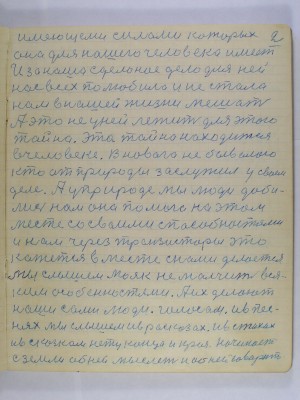 имеющеми силами которых 2
она для нашего человека имеет
И за наша сделоное дело для ней
нас всех полюбила и не стала
нам в нашей жизни мешать
А это не у ней лежит для этого
тайна. Эта тайна находится
в человеке. В новаго не бывалого
кто от природы заслужил у своем
деле. А у природе мы люди доби-
лись нам она помогс на этом
месте со своими способностями
и нам через транзисторы это
кажется вместе с нами делается
мы слышем маяк не молчит вся-
кими особенностями. А их делают
наши сами люди. голосам, и в пес-
нях мы слышим и в расказах, и в стихах
и в сказкам нету конца и края. начинают
с земли об ней мыслют и об ней говорят